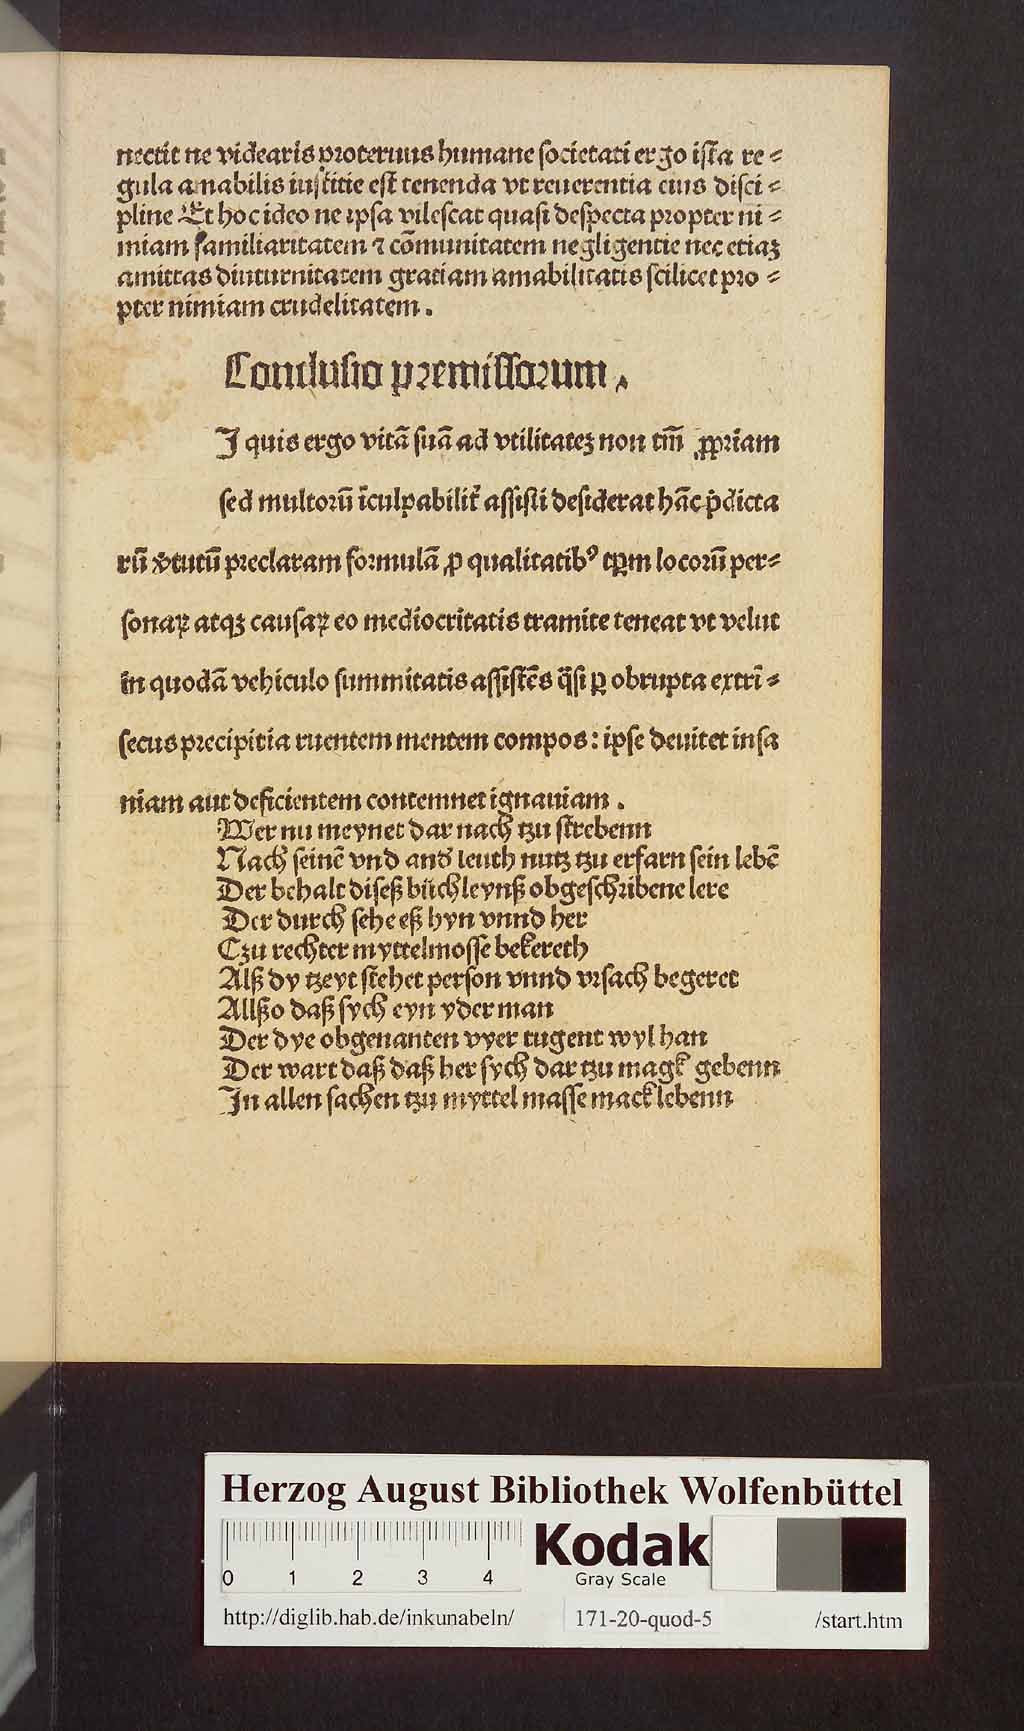 nectit ne videaris proteruus humane societati ergo ista re⸗
gula amabilis iustitie est tenenda vt reuerentia eius disci⸗
pline Et hoc ideo ne ipsa vilescat quasi despecta propter ni⸗
miam familiaritatem ⁊ cōmunitatem negligentie nec etiaꝫ
amittas diuturnitatem gratiam amabilitatis scilicet pro⸗
pter nimiam crudelitatem.
Conclusio premissorum.
I quis ergo vitā suā ad vtilitateꝫ non tm̄ ꝓpriam
sed multorū īculpabilit̉ assisti desiderat hāc p̄dicta
rū v̉tutū preclaram formulā ꝓ qualitatibꝰ tꝑm locorū per⸗
sonaꝝ atqꝫ causaꝝ eo mediocritatis tramite teneat vt velut
in quodā vehiculo summitatis assistēs q̄si ꝑ obrupta extrī⸗
secus precipitia ruentem mentem compos: ipse deuitet insa
niam aut deficientem contemnet ignauiam.
Wer nu meynet dar nach tzu strebenn
Nach seinē vnd and̉ leuth nutz tzu erfarn sein lebē
Der behalt diseß büchleynß obgeschribene lere
Der durch sehe eß hyn vnnd her
Czu rechter myttelmosse bekereth
Alß dy tzeyt stehet person vnnd vrsach begeret
Allßo daß sych eyn yder man
Der dye obgenanten vyer tugent wyl han
Der wart daß daß her sych dar tzu magk gebenn
In allen sachen tzu myttel masse mack lebenn
Herzog August Bibliothek Wolfenbüttel
0 1 2 3 4
Kodak
Gray Scale
http://diglib.hab.de/inkunabeln/ 171-20-quod-5 /start.htm